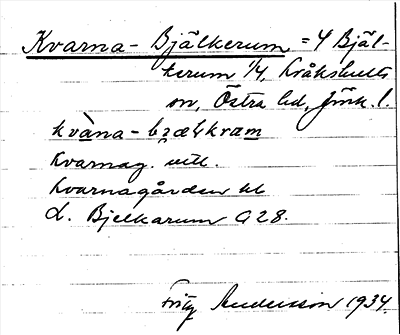 Kvarna-Bjälkerum = 4 Bjäl-
kerum 1/4, Kråkshults
sn, Östra hd, Jönk. l.
kvàna-bræl̨kram
Kvarnag. vill.
Kvarnagården tel
L. Bjelkarum A 28.
Fritz Andersson 1934.